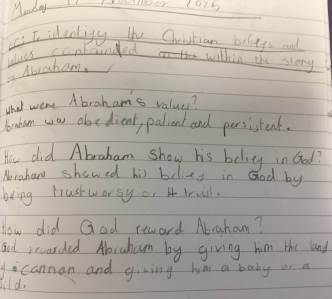 Monday
LC: I identify the Christian beliefs and
values contained within the story
Abraham.
What were Abraham's values?
Abraham was obedient, patient and persistent.
How did Abraham show his belief in God?
Abraham showed his belief in God by
being trustworsy or trust.
How did God reward Abraham?
God rewarded Abraham by giving him the land
of cannan and giving him a baby or a